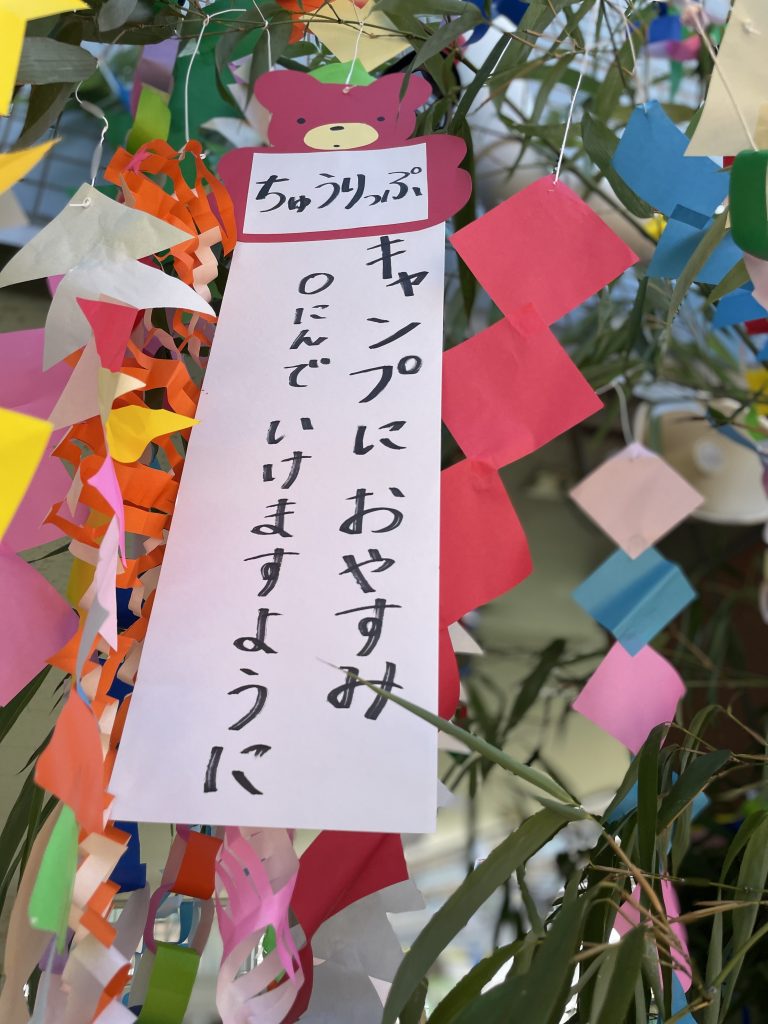 ちゅうりっぷ
キャンプに おやすみ
○にんで いけますように